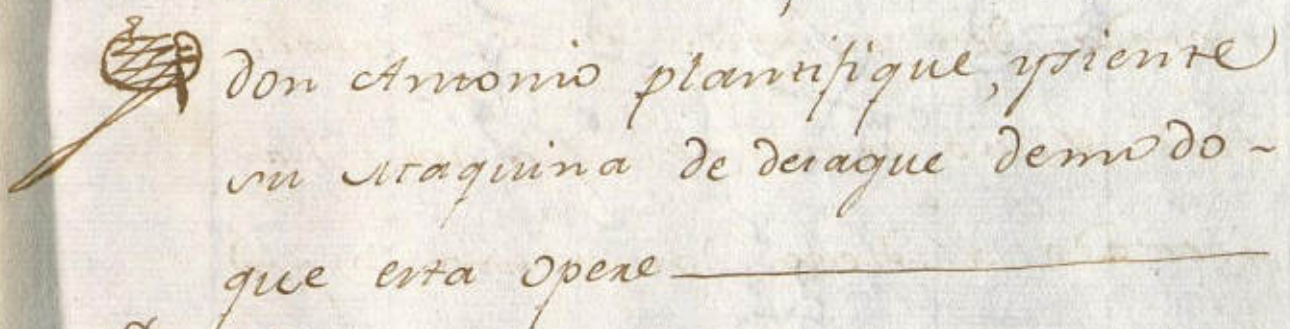 don Antonio plantifique, ysiente
su Maquina de desague demodo -
que esta opere